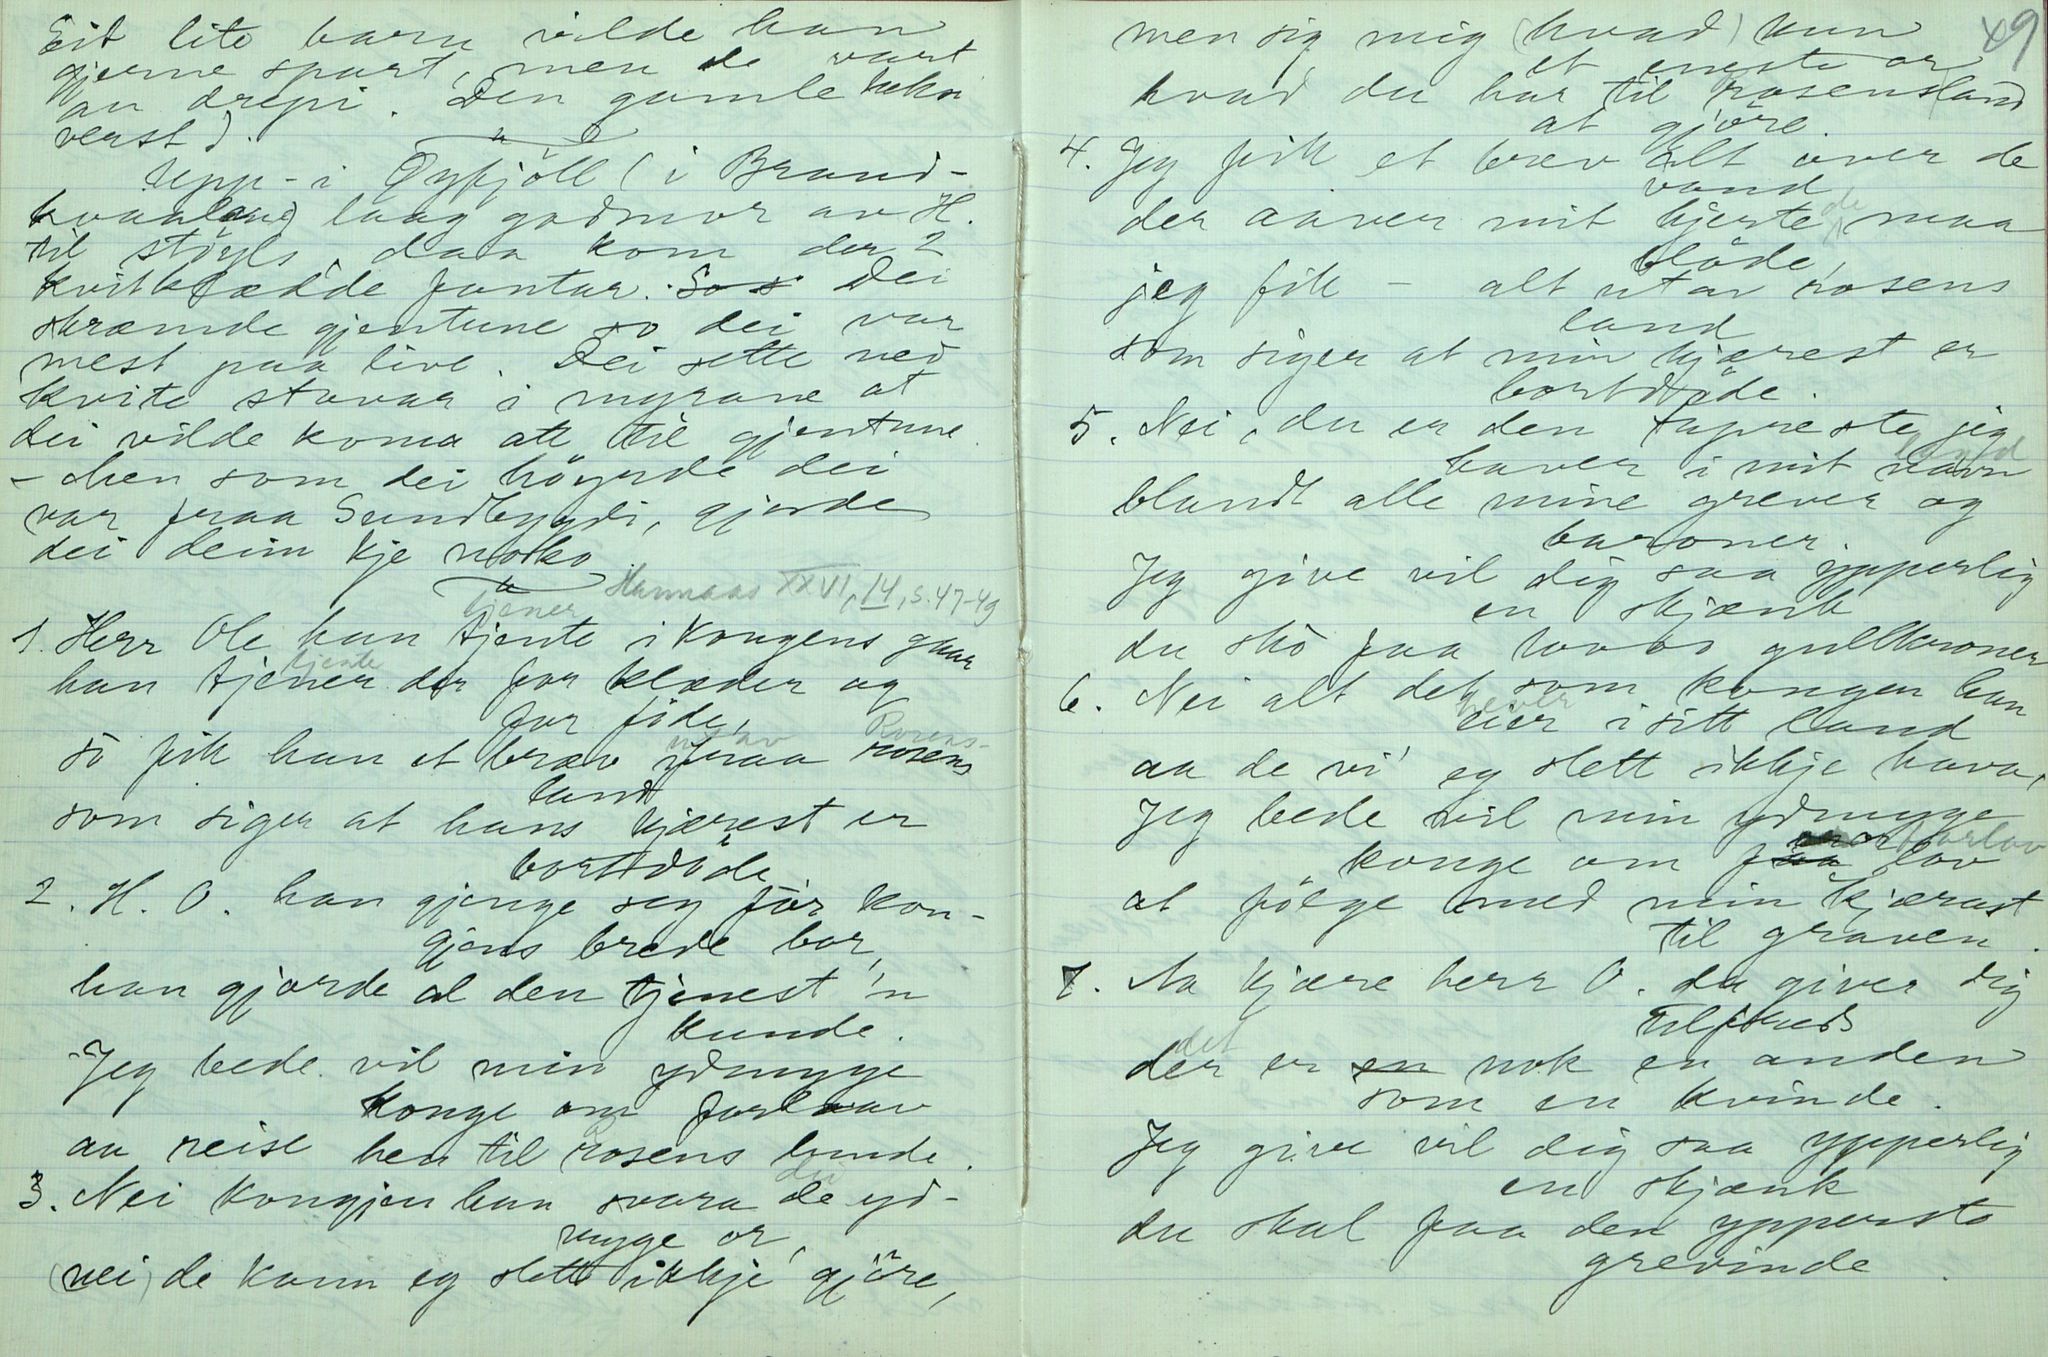 Eit lite barn vilde han
gjerne spart, men de vart
au drepi. Den gamle heksa
verst).
Uppi Øyfjöll (i Brand-
kvaaland) laag godmor av H.
til støyls, daa kom der 2
kvitklædde fantar. So s Dei
skræmde gjentune so dei var
mest paa live. Dei sette ned
kvite stavar i myrane at
dei vilde koma att til gjentune.
- Men som dei höyrde dei
var fraa Sundbygdi, gjorde
dei deim kje noko.
Hannaas XXVI, 14, s. 47-49
tjener
1. Herr Ole han tjente i kongens gaar
tjente
han tjener der for klæder og
for föde,
ut av Rosens-
so fik han et brev fraa rosens
land
som siger at hans kjærest er
bortdöde
2. H. O. han gjenge seg för kon-
gjens brede bor,
han gjorde al den tjenest 'n
kunde.
Jeg bede vil min ydmyge
konge om forlaav
aa reise hen til rosens lunde.
dei
3. Nei kongjen han svara de yd-
myge or,
(nei) de kann eg slett ikkje gjöre,
49
men sig mig (hvad) kun
et eneste or
hvad du har til rosensland
at gjöre.
4. Jeg fik et brev alt over de
vand
de
der aaver mit hjerte maa
blöde,
jeg fik - alt utav rosens
land
som siger at min kjærest er
bortdöde.
5. Nei, du er den tapreste jeg
haver i mit navn
blandt alle mine grever og
baroner.
Jeg give vil dig saa ypperlig
en skjænk
du sko faa gullkroner
6. Nei alt det som kongen han
hever
eier i sitt land
aa de vi' eg slett ikkje hava,
Jeg bede vil min ydmyge
forlov
konge om faa lov
at fölge med min kjærast
til graven.
7. Aa kjære herr O. du giver dig
tilfreds
det
der er en nok en anden
som en kvinde.
Jeg give vil dig saa ypperlig
en skjænk
du skal faa den ypperste
grevinde.